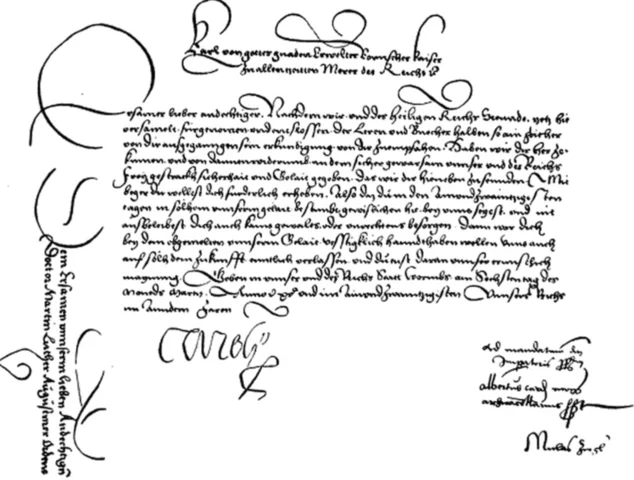 Karl von gotes gnaden Erwelter Roemischer Kaiser
zu allen zeitten Merer des Reichs
Ersamer lieber andechtiger. Nachdem wir und des Heiligen Reichs Stennde, yetz hie
versamelt, fürgenomen und entslossen, der Leren und Buecher halben so ain zeither
von dir ausgegangen sein erkundigung von dir zuempfahen. Haben wir dir her zu
kumen und von dannen widerumb an dein sicher gewarsam unnser und des Reichs
Frey gestrackh sicherhait und Glait gegeben. das wir dir hieneben zusenden Mit
beger du wellest dich fuerderlich erheben. Also das du in den Ainundzwaintzigisten
tagen in solhem unnserm glait bestimbt gewislichen hie bey unns seyest. und nit
aussbleibest dich auch kains gewalts oder unrechtens besorgen. dann wir dich
bey dem obgemelten unnserm Glait vesstigklich hanndthaben wellen unns auch
auf solh dein zukunfft enntlich verlassen und du tust daran unnser ernnstlich
maynung. Geben in unnser und des Reichs Stat Wormbs am Sechsten tag des
Moneds Marcy. Anno und im Ainundzwaintzigisten Unnserer Reiche
im Anndern Jaren
Carolus
Ad mandatum
Imperatoris
Albertus card
archicancellarius
Niclas
Dem Ersamen unnserm lieben Andechtigen
Doctor Martin Luther Augustiner Ordens